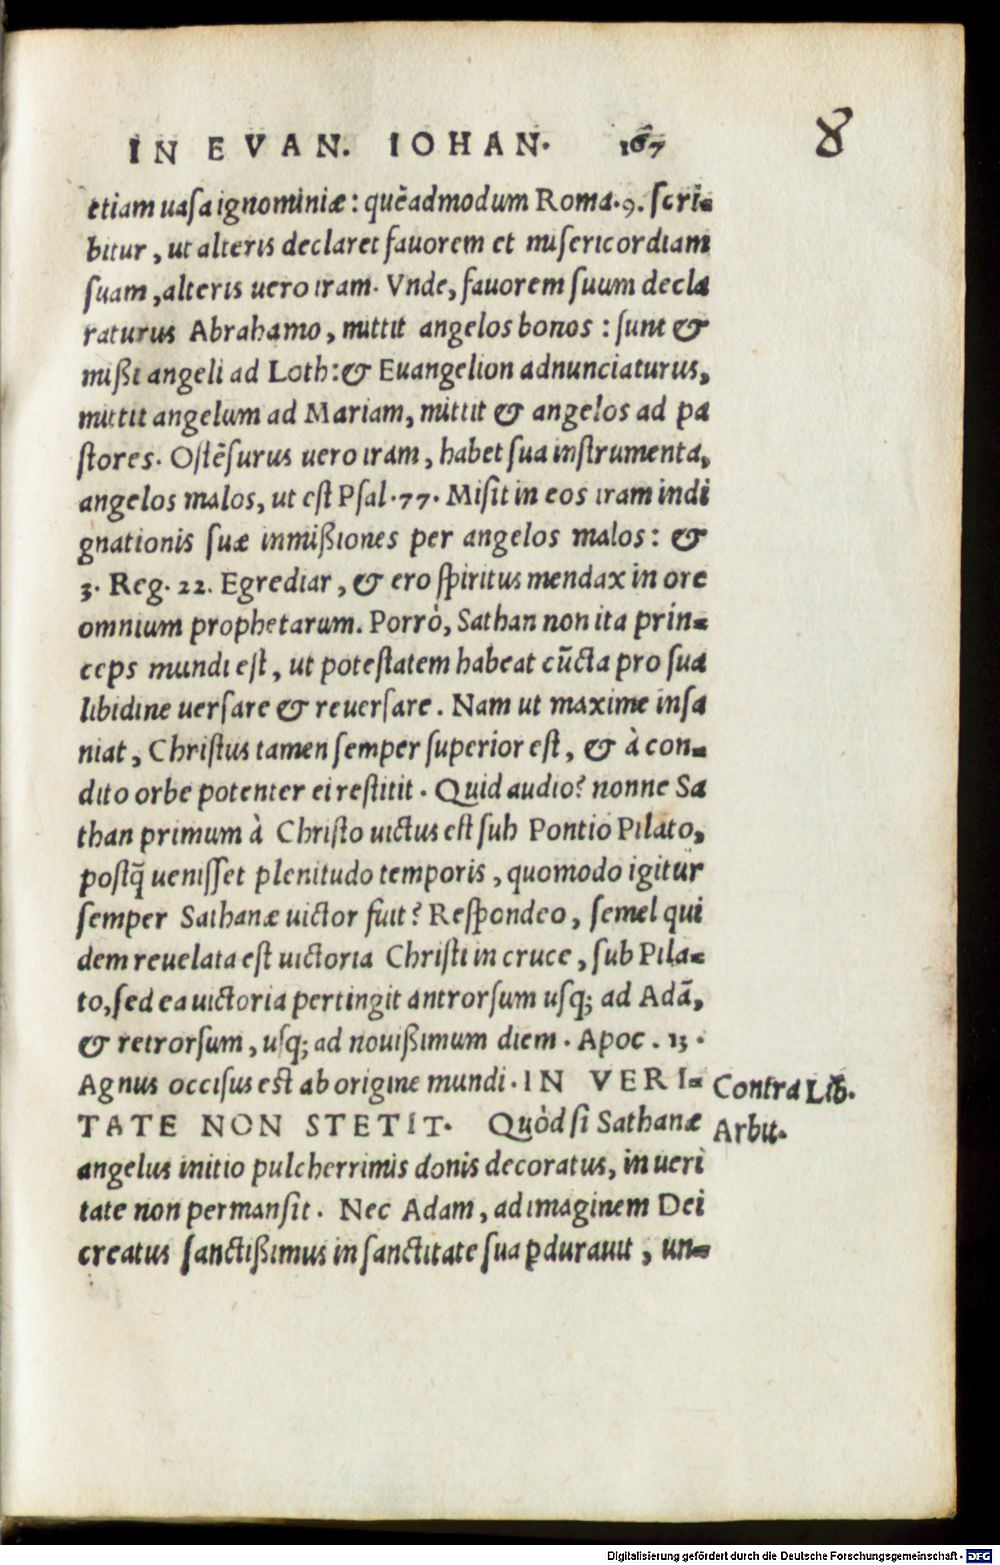 IN EVAN. IOHAN. 167
8
etiam uasa ignominiæ: quẽadmodum Roma.9. scri-
bitur, ut alteris declaret fauorem et misericordiam
suam, alteris uero iram. Vnde, fauorem suum decla
raturus Abrahamo, mittit angelos bonos: sunt &
mißi angeli ad Loth: & Euangelion adnunciaturus,
mittit angelum ad Mariam, mittit & angelos ad pa
stores. Ostẽsurus uero iram, habet sua instrumenta,
angelos malos, ut est Psal.77. Misit in eos iram indi
gnationis suæ inmißiones per angelos malos: &
3. Reg. 22. Egrediar, & ero spiritus mendax in ore
omnium prophetarum. Porrò, Sathan non ita prin-
ceps mundi est, ut potestatem habeat cũcta pro sua
libidine uersare & reuersare. Nam ut maxime insa
niat, Christus tamen semper superior est, & à con-
dito orbe potenter ei restitit. Quid audio? nonne Sa
than primum à Christo uictus est sub Pontio Pilato,
postq̃ uenisset plenitudo temporis, quomodo igitur
semper Sathanæ uictor fuit? Respondeo, semel qui
dem reuelata est uictoria Christi in cruce, sub Pila-
to, sed ea uictoria pertingit antrorsum usq; ad Adã,
& retrorsum, usq; ad nouißimum diem. Apoc. 13.
Agnus occisus est ab origine mundi. IN VERI-
TATE NON STETIT. Quòd si Sathanæ
angelus initio pulcherrimis donis decoratus, in ueri
tate non permansit. Nec Adam, ad imaginem Dei
creatus sanctißimus in sanctitate sua ꝑdurauit, un-
Contra Lib.
Arbit.
Digitalisierung gefördert durch die Deutsche Forschungsgemeinschaft - DFG